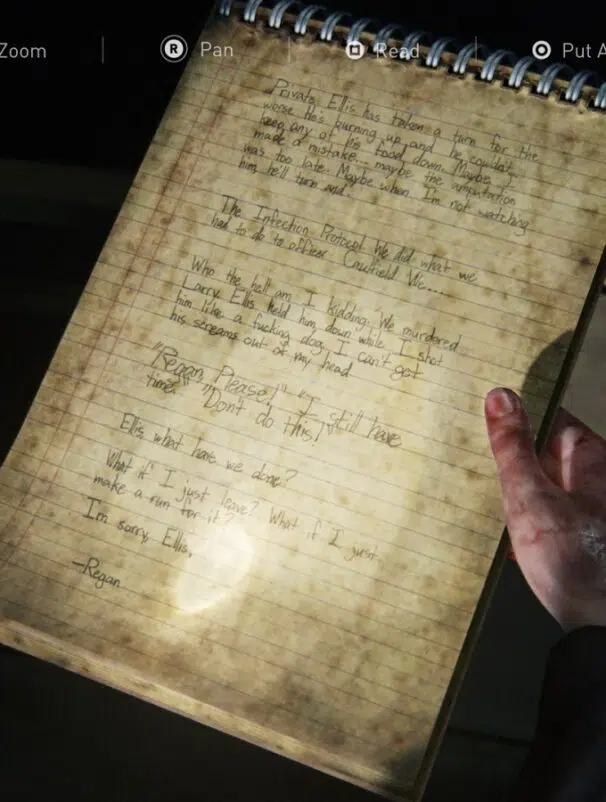 Zoom
R Pan
Read
Put A
Private Ellis has taken a turn for the
worse he's burning up, and he couldn't
keep any of his food down. Maybe I
made a mistake... maybe the amputation
was too late. Maybe when I'm not watching
him, he'll turn and..
The Infection Protocol. We did what we
had to do to officer Caulfield We....
Who the hell am I kidding. We murdered
Larry. Ellis held him down while I shot
him like a fucking dog, I can't get
his screams out of my head
"Regan, Please!" "I still have
time" "Don't do this!"
Ellis what have we done?
What if I just leave? What if I just
make a run for it?
I'm sorry, Ellis,
-Regan